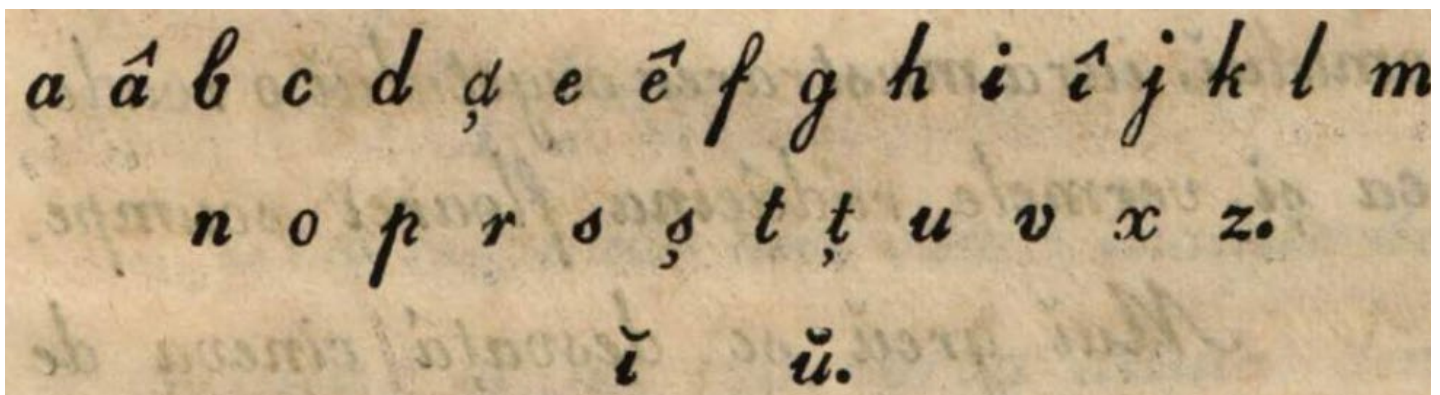 a â b c d d̦ e ê f g h i î j k l m
n o p r s ș t ț u v x z.
ĭ ŭ.